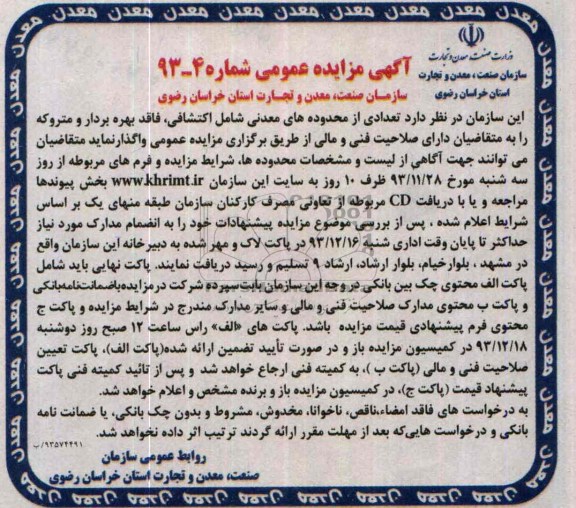 معدن معدن معدن معدن معدن معدن معدن معدن معدن معدن معدن
وزارت صنعت، معدن و تجارت
سازمان صنعت، معدن و تجارت
استان خراسان رضوی
آگهی مزایده عمومی شماره ۴-۹۳
سازمـان صنعت، معدن و تجـارت استان خراسان رضوی
این سازمان در نظر دارد تعدادی از محدوده های معدنی شامل اکتشافی، فاقد بهره بردار و متروکه
را به متقاضیان دارای صلاحیت فنی و مالی از طریق برگزاری مزایده عمومی واگذارنماید متقاضیان
می توانند جهت آگاهی از لیست و مشخصات محدوده ها، شرایط مزایده و فرم های مربوطه از روز
سه شنبه مورخ ۹۳/۱۱/۲۸ ظرف ۱۰ روز به سایت این سازمان www.khrimt.ir بخش پیوندها
مراجعه و یا با دریافت CD مربوطه از تعاونی مصرف کارکنان سازمان طبقه منهای یک بر اساس
شرایط اعلام شده ، پس از بررسی موضوع مزایده پیشنهادات خود را به انضمام مدارک مورد نیاز
حداکثر تا پایان وقت اداری شنبه ۹۳/۱۲/۱۶ در پاکت لاک و مهر شده به دبیرخانه این سازمان واقع
در مشهد ، بلوارخیام، بلوار ارشاد، ارشاد ۹ تسلیم و رسید دریافت نمایند. پاکت نهایی باید شامل
پاکت الف محتوی چک بین بانکی در وجه این سازمان بابت سپرده شرکت در مزایده یا ضمانت نامه بانکی
و پاکت ب محتوی مدارک صلاحیت فنی و مالی و سایر مدارک مندرج در شرایط مزایده و پاکت ج
محتوی فرم پیشنهادی قیمت مزایده باشد. پاکت های «الف» راس ساعت ۱۲ صبح روز دوشنبه
۹۳/۱۲/۱۸ در کمیسیون مزایده باز و در صورت تأیید تضمین ارائه شده(پاکت الف)، پاکت تعیین
صلاحیت فنی و مالی (پاکت ب )، به کمیته فنی ارجاع خواهد شد و پس از تائید کمیته فنی پاکت
پیشنهاد قیمت (پاکت ج)، در کمیسیون مزایده باز و برنده مشخص و اعلام خواهد شد.
به درخواست های فاقد امضاء،ناقص، ناخوانا، مخدوش، مشروط و بدون چک بانکی، یا ضمانت نامه
بانکی و درخواست هایی‌که بعد از مهلت مقرر ارائه گردند ترتیب اثر داده نخواهد شد.
۹۳۵۷۴۴۹۱/ب
روابط عمومی سازمان
صنعت، معدن و تجارت استان خراسان رضوی